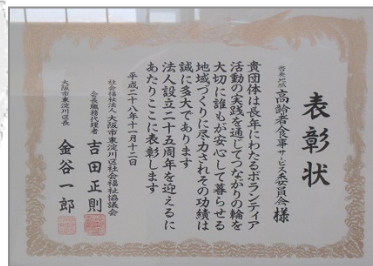 表彰状
啓発地域
高齢者食事サービス委員会 様
貴団体は長年にわたるボランティア
活動の実践を通じてつながりの輪を
大切に誰もが安心して暮らせる
地域づくりに尽力されその功績は
誠に多大であります
法人設立二十五周年を迎えるに
あたりここに表彰します
平成二十八年十一月十二日
社会福祉法人 大阪市東淀川区社会福祉協議会
会長職務代理者 吉田正則
大阪市東淀川区長 金谷一郎